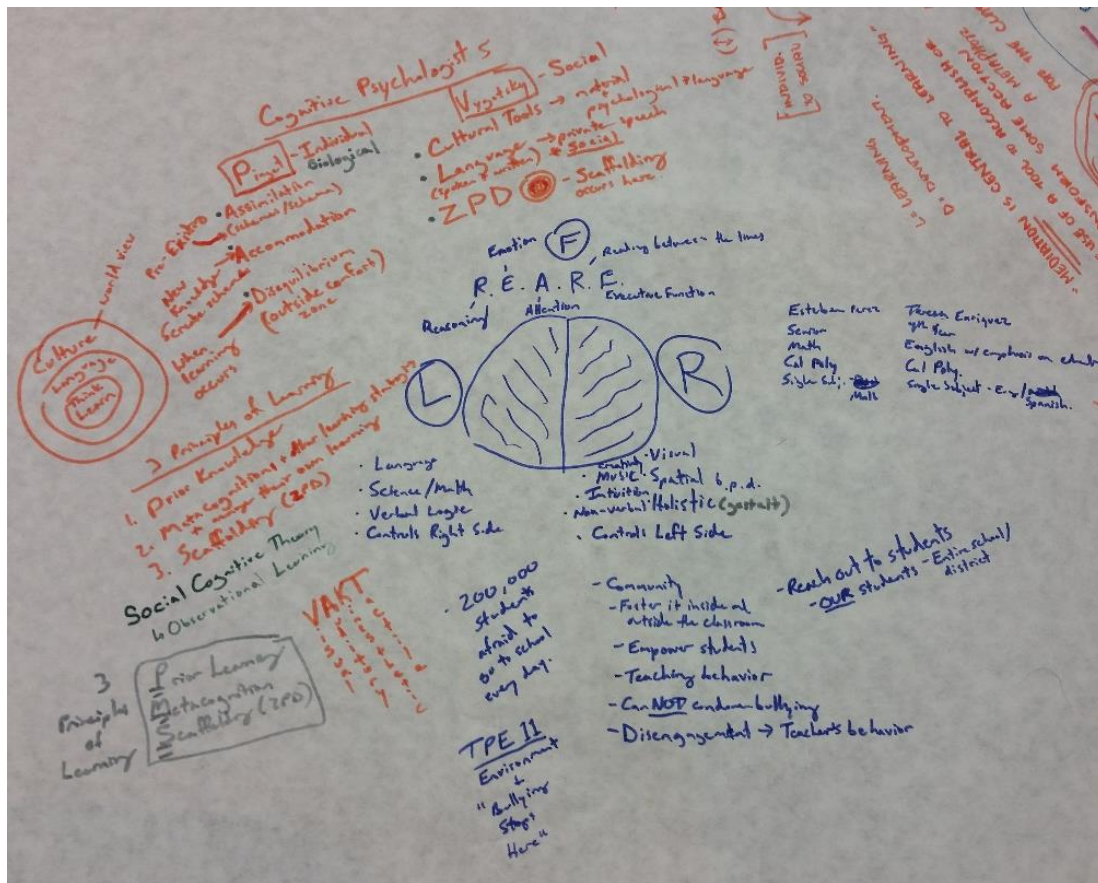 Cognitive Psychologists
Piaget - Individual
Biological
Pre-Existing
Assimilation
(schemas/schema)
New
Knowledge
Create schema
Accommodation
When
learning
occurs
Disequilibrium
(outside comfort
zone)
Vygotsky - Social
Cultural Tools → material
psychological + language
Language → private speech
(spoken & written) * social
ZPD - Scaffolding
occurs here.
world view
Culture
Language
Think
Learn
3 Principles of Learning
1. Prior Knowledge
2. Metacognitions + Allow learning strategies
to manage their own learning
3. Scaffolding (ZPD)
Social Cognitive Theory
↳ Observational Learning
3
Principles
of
Learning
Prior Learning
Metacognition
Scaffolding (ZPD)
VAKT
Visual
Auditory
Kinesthetic
Tactile
F
Emotion
Reading between the lines
R. E. A. R. E.
Reasoning
Attention
Executive Function
L
R
· Language
· Science/Math
· Verbal Logic
· Controls Right Side
creativity
· Visual
· Music
· Spatial b.p.d.
· Intuition
· Non-verbal
· Holistic (gestalt)
· Controls Left Side
Esteban Perez
Senior
Math
Cal Poly
Single Subj. -
Math
Teresa Enriquez
4th Year
English w/ emphasis on
Cal Poly.
Single Subject - Eng/
Spanish.
· 200,000
students
afraid to
go to school
every day.
TPE 11
Environment
+
"Bullying
Stops
Here"
- Community
- Foster it inside and
outside the classroom
- Empower students
- Teaching behavior
- Can NOT condone bullying
- Disengagement → Teacher's behavior
- Reach out to students
- OUR students - Entire school/
district
INDIVID.
TO SOCIAL
"MEDIATION IS CENTRAL TO LEARNING"
USE OF A TOOL TO ACCOMPLISH OR
TRANSFORM SOME ACTION
A METAPHOR
FOR THE
L = LEARNING
D = DEVELOPMENT.